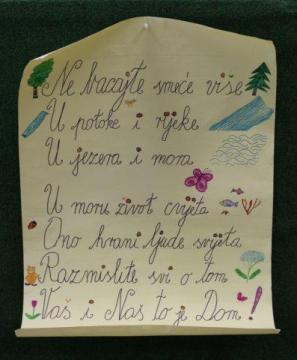 Ne bacajte smeće više
U potoke i rijeke
U jezera i mora
U moru život cvjeta
Ono hrani ljude svijeta
Razmislite svi o tom
Vaš i Naš to je Dom!